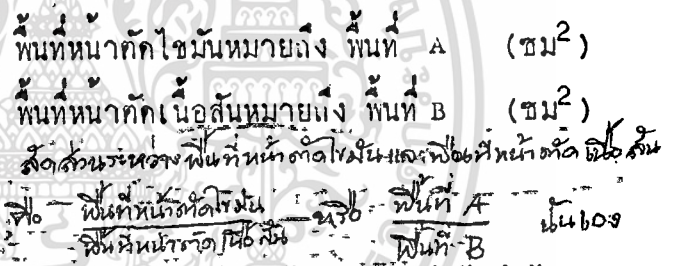 พื้นที่หน้าตัดไขมันหมายถึง พื้นที่ A (ซม²)
พื้นที่หน้าตัดเนื้อสันหมายถึง พื้นที่ B (ซม²)
สัดส่วนระหว่างพื้นที่หน้าตัดไขมันและพื้นที่หน้าตัดเนื้อสัน
คือ พื้นที่หน้าตัดไขมัน หรือ พื้นที่ A นั่นเอง
พื้นที่หน้าตัดเนื้อสัน พื้นที่ B